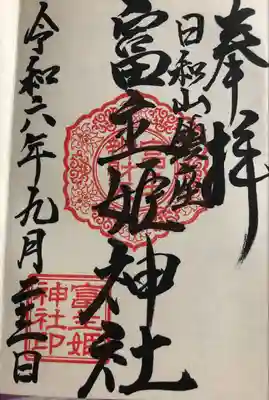 奉拝
日和山鎮座
富主姫神社
令和六年九月 日
富主姫
神社印